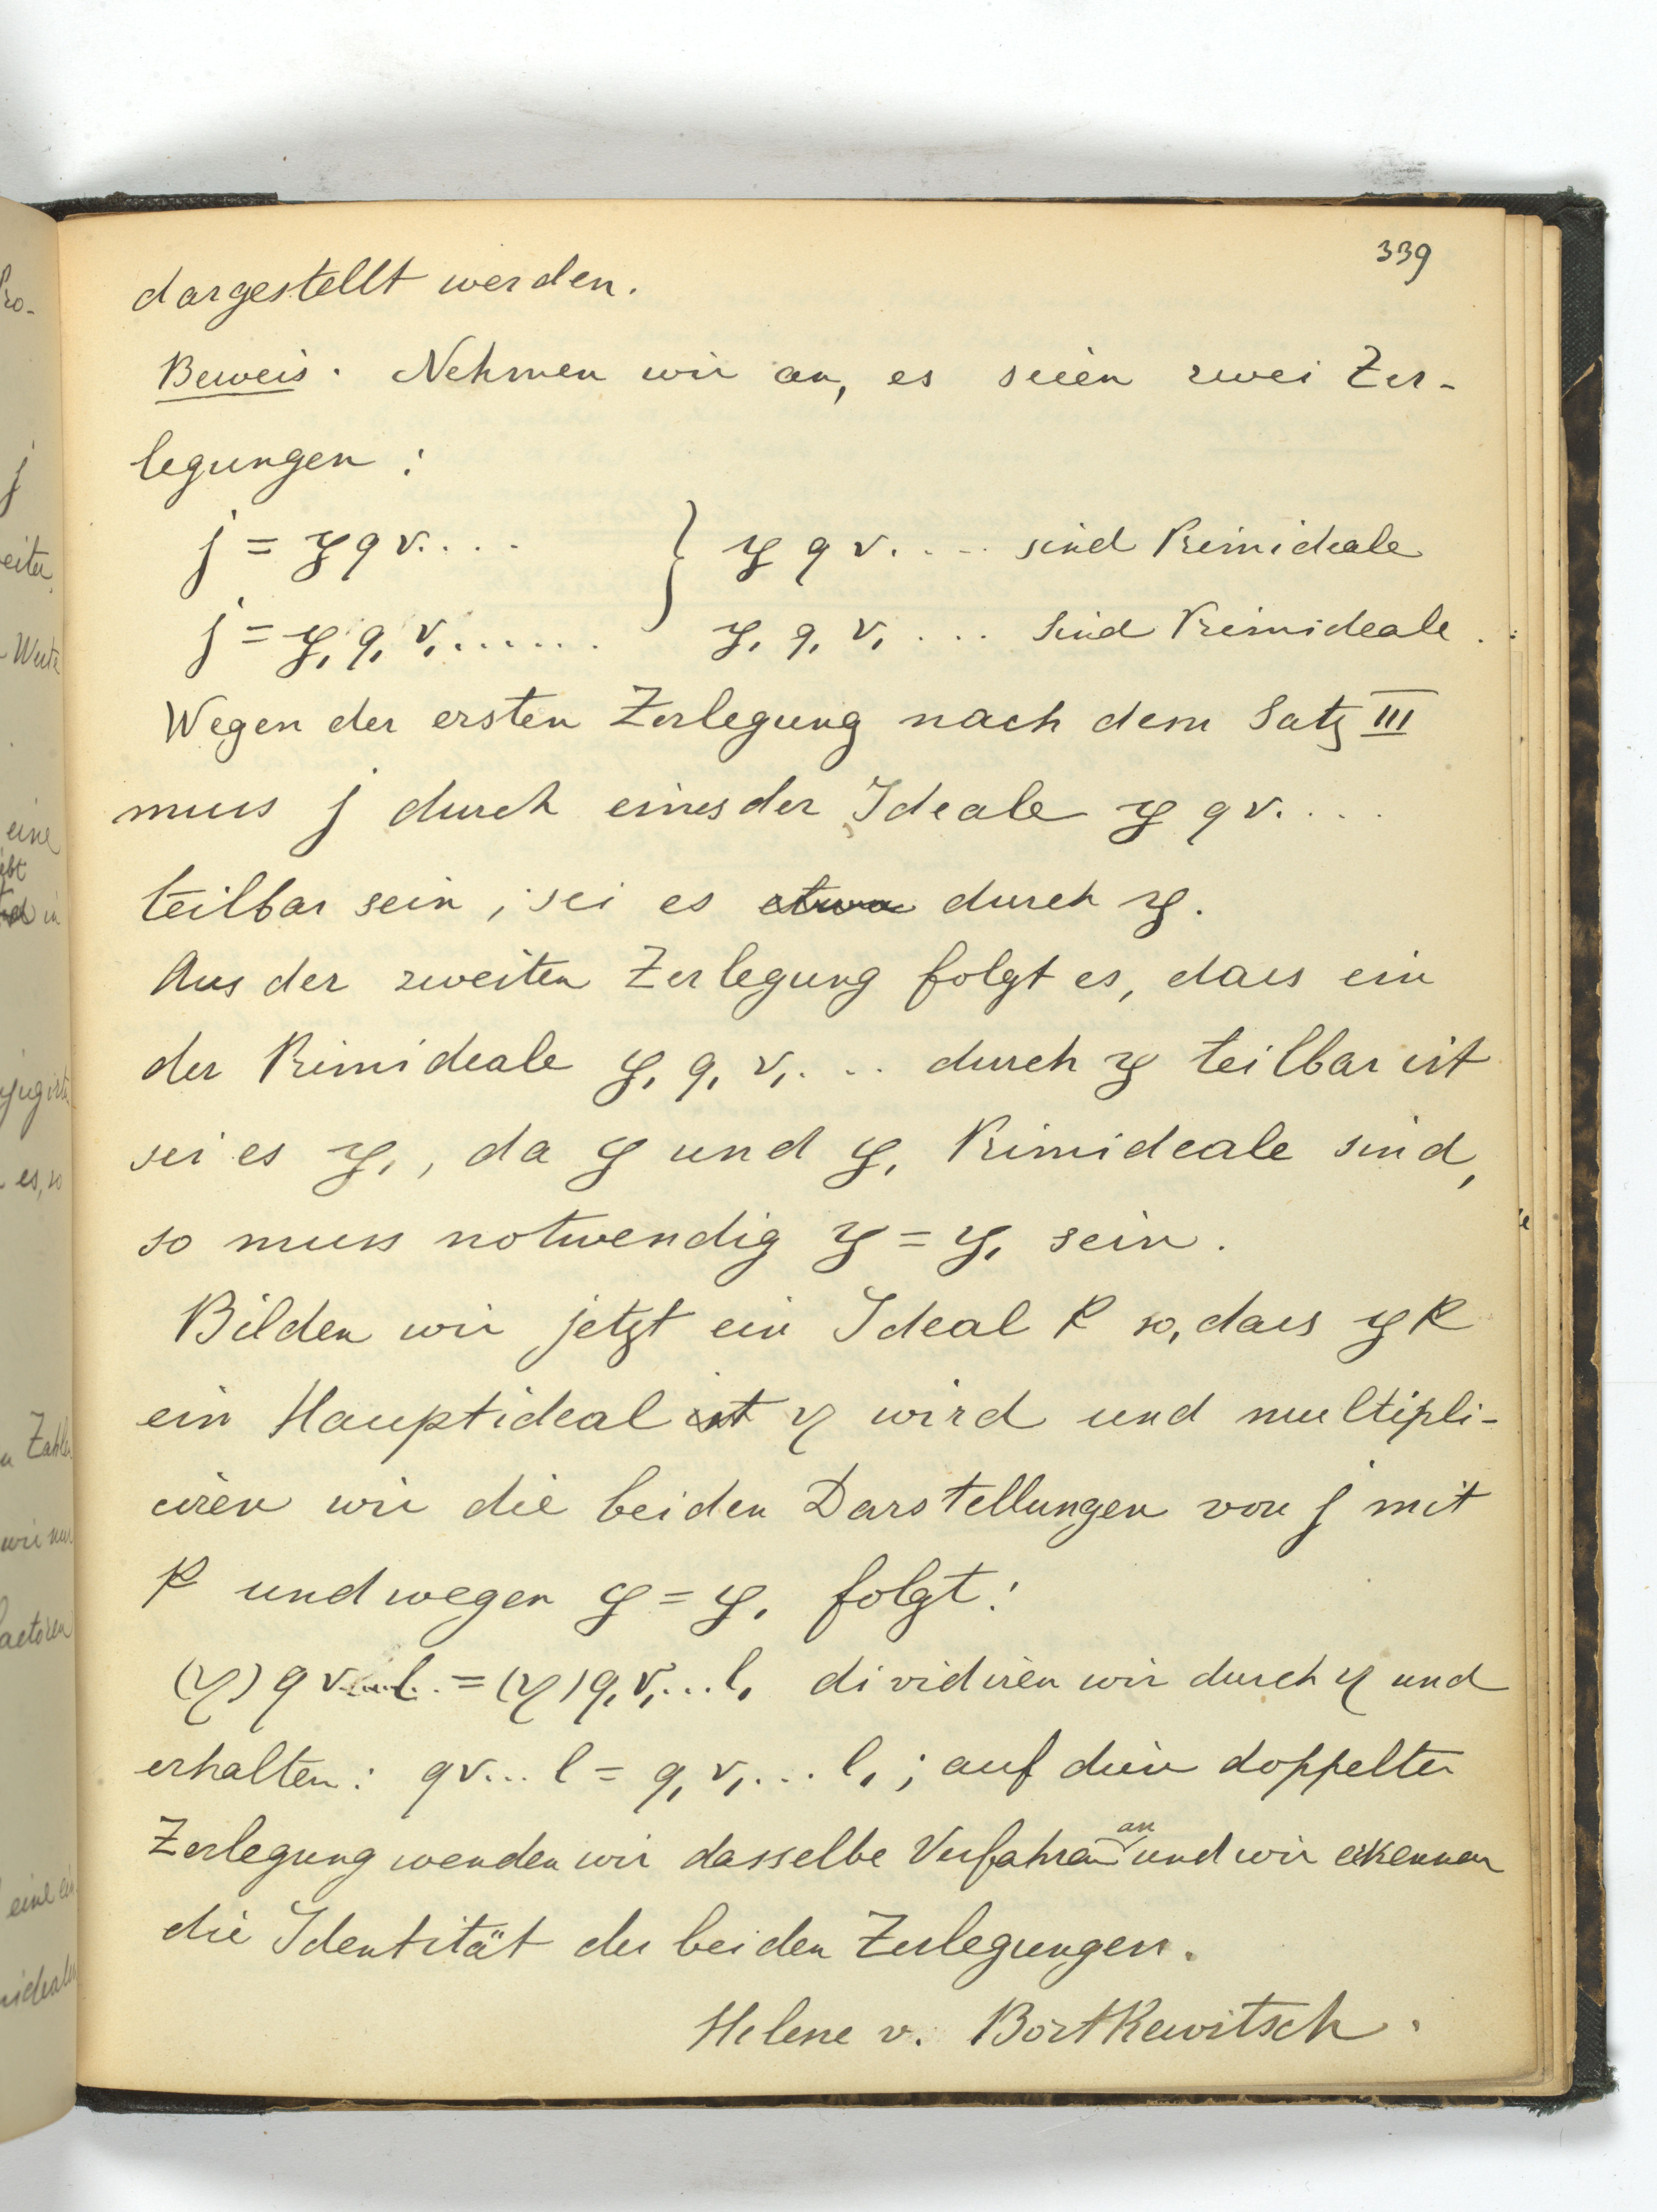 339
dargestellt werden.
Beweis. Nehmen wir an, es seien zwei Zer-
legungen:
j = 𝔭 q r.... } 𝔭 q r.... sind Primideale
j = 𝔭, q, r,...... 𝔭, q, r, ... sind Primideale.
Wegen der ersten Zerlegung nach dem Satz III
muss j durch eines der Ideale 𝔭 q r....
teilbar sein, sei es etwa durch 𝔭.
Aus der zweiten Zerlegung folgt es, dass ein
der Primideale 𝔭, q, r,... durch 𝔭 teilbar ist
sei es 𝔭,, da 𝔭 und 𝔭, Primideale sind,
so muss notwendig 𝔭 = 𝔭, sein.
Bilden wir jetzt ein Ideal k so, dass 𝔭 k
ein Hauptideal ist η wird und multipli-
ciren wir die beiden Darstellungen von j mit
k und wegen 𝔭 = 𝔭, folgt:
(η) q r...l. = (η) q, r,...l, dividiren wir durch η und
erhalten: q r... l = q, r,... l,; auf diese doppelte
Zerlegung wenden wir dasselbe Verfahren an und wir erkennen
die Identität der beiden Zerlegungen.
Helene v. Bortkewitsch.